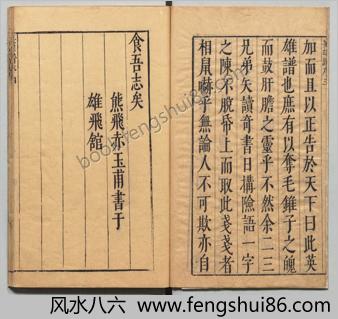 加而且以正告於天下曰此英
雄譜也庶有以奪毛錐子之魄
而鼓肝膽之靈乎不然余二三
兄弟矢讀奇書日搆險語一字
之陳不脫帋上而取此戔戔者
相鼠嚇乎無論人不可欺亦自
食吾志矣
熊飛赤玉甫書于
雄飛館
book.fengshui86.com
风水八六 www.fengshui86.com